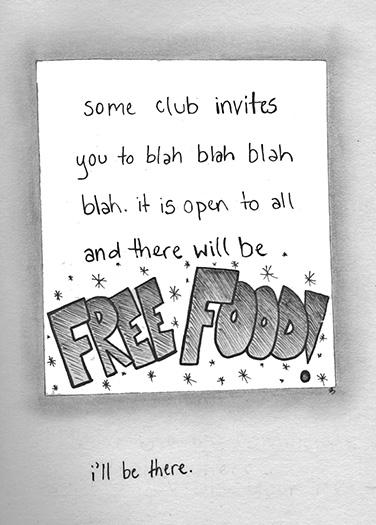 some club invites
you to blah blah blah
blah. it is open to all
and there will be
FREE FOOOD!
i'll be there.